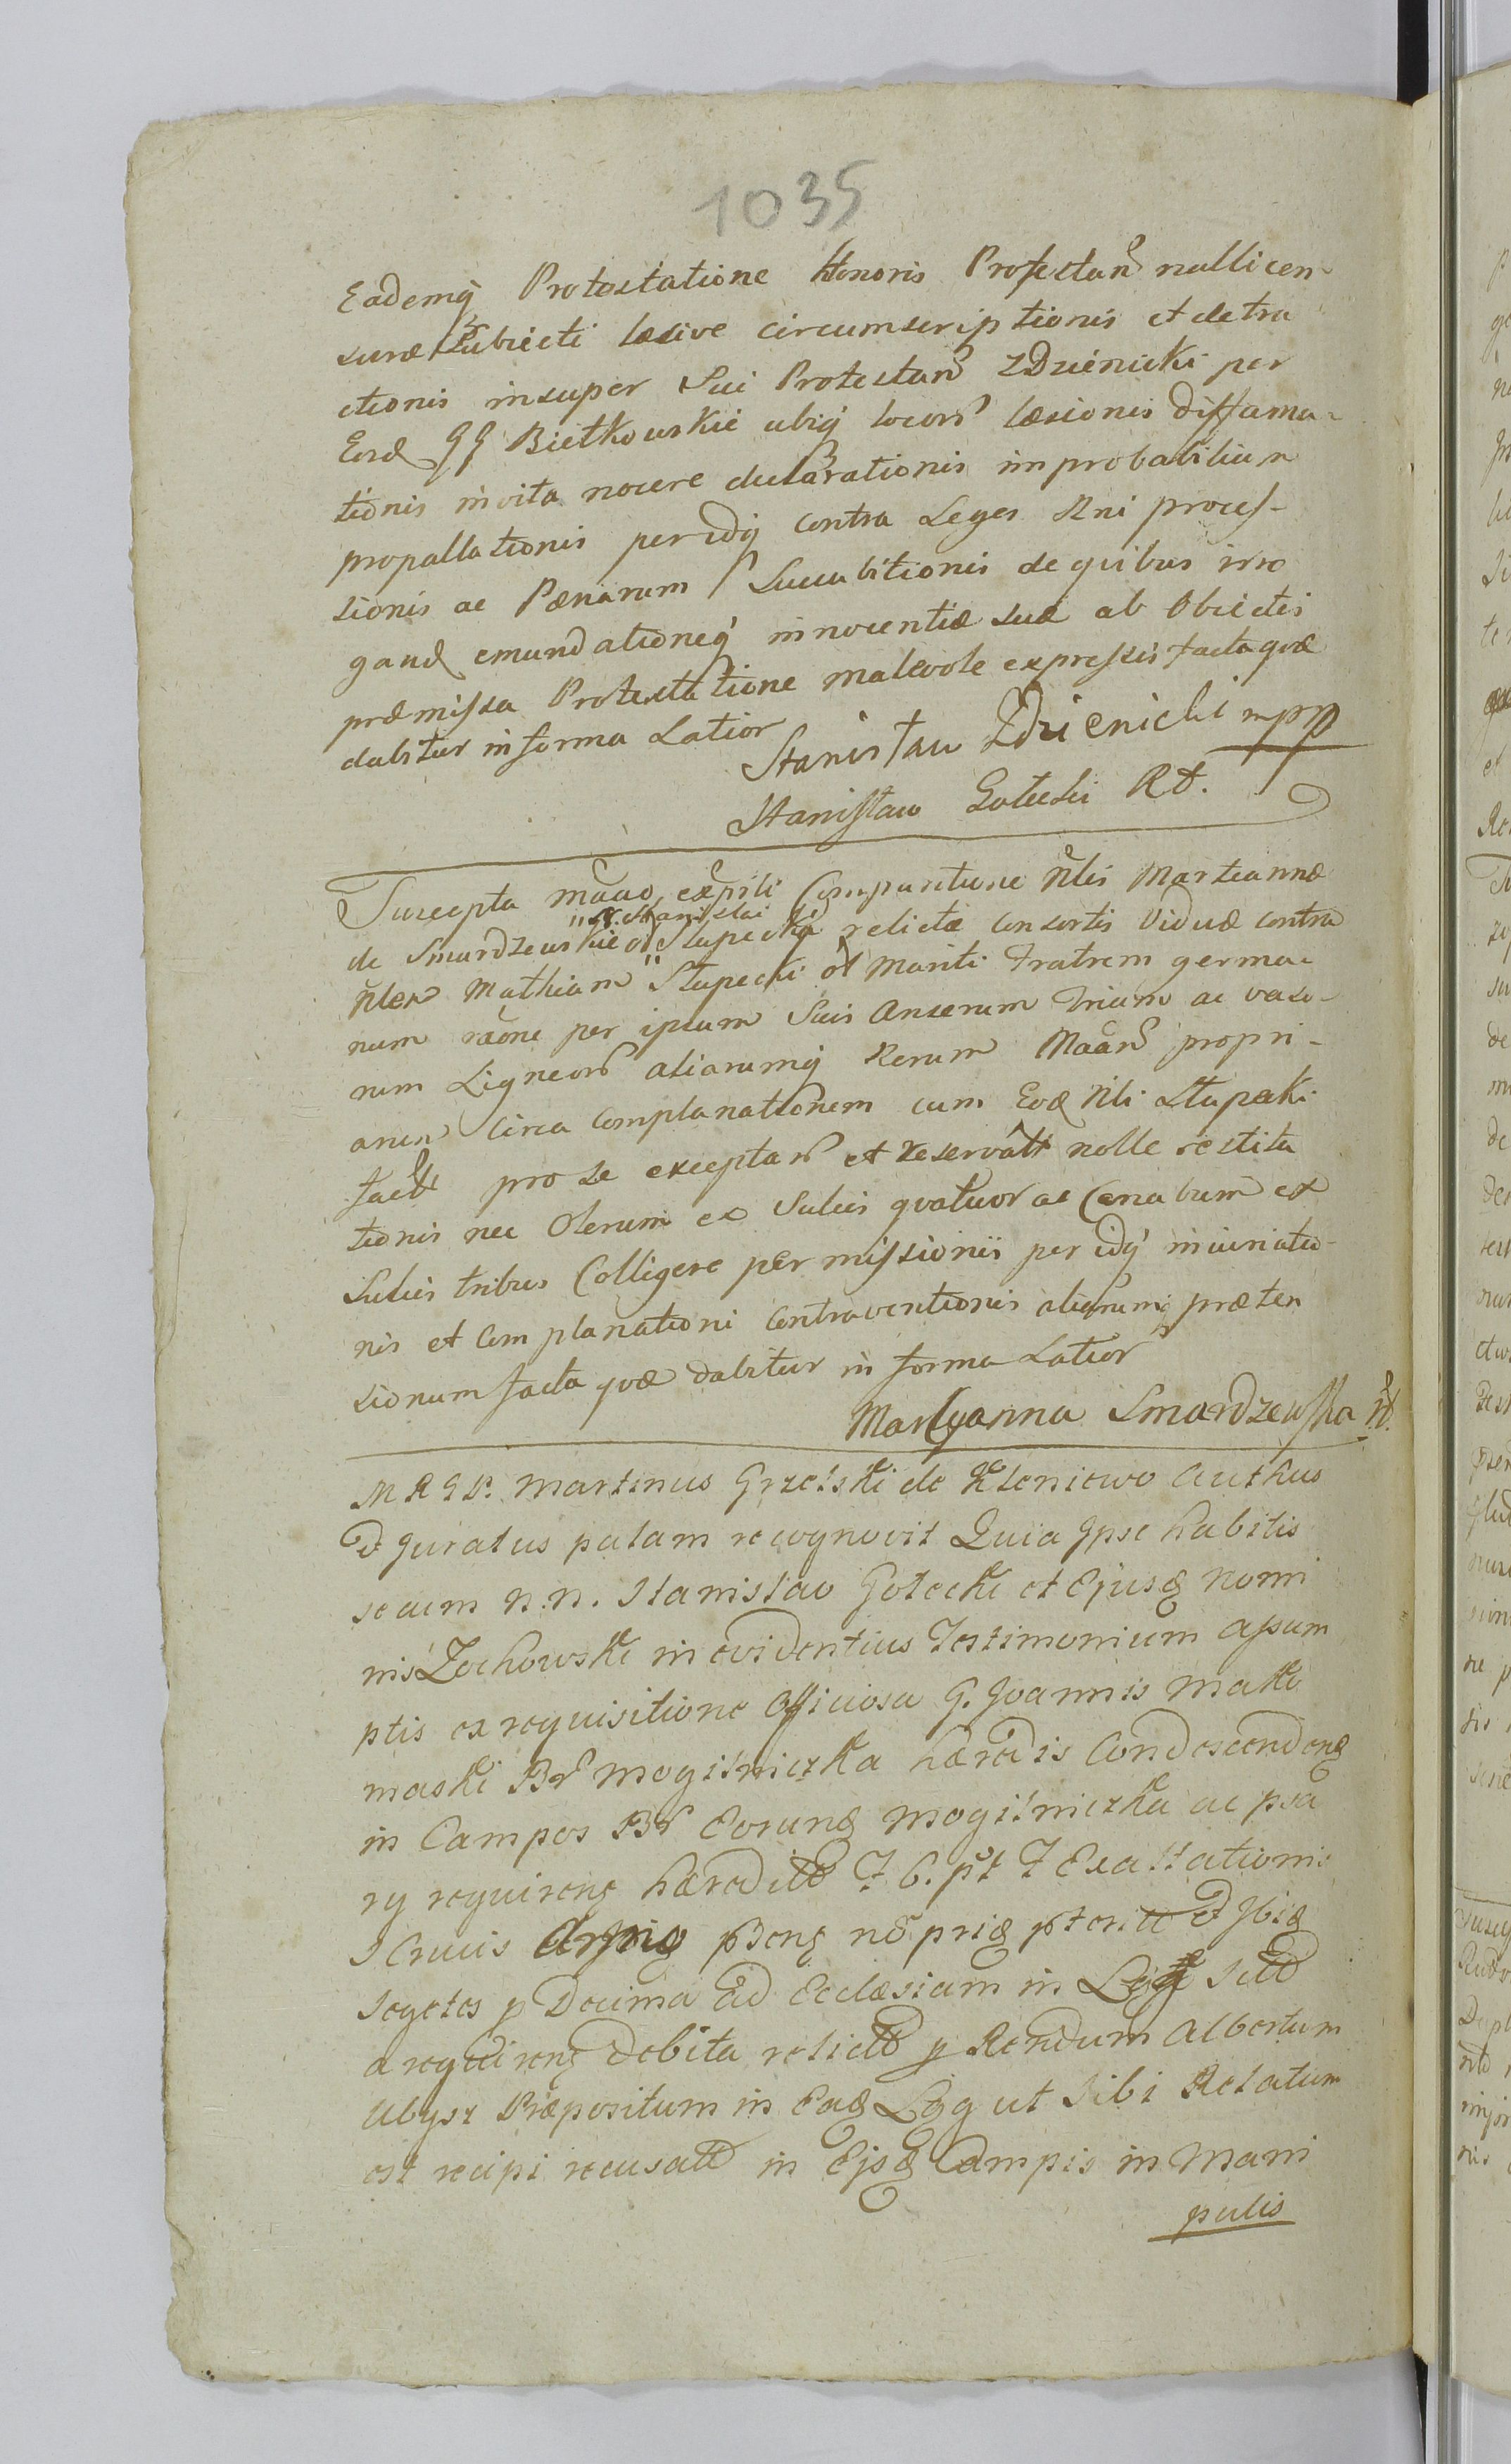 1035
Eademq Protestatione Honoris Protestan nullicen-
suræ Subiecti læsive circumscriptionis et detra
ctionis insuper Sui Protestan Zdzienicki per
Eosd GG Bietkowskie ubiq locor læsionis diffama-
tionis invita nocere declarationis improbabilium
propallationis peridq contra Leges Rni proces-
sionis ac Pænarum Succubitionis de quibus irro
gand emundationeq innocentiæ suæ ab Obiectis
præmissa Protestatione malevole expressis facta quæ
dabitur in forma Latior
Stanisław Zdzienicki mpp
Stanisław Gołecki Rt.
Suscepta comparitione Nlis Martiannæ
de Smardzewskie "N. Stanislai
Słupecki relictæ consortis Viduæ contra
Nlem Mathiam Słupecki ol Mariti Fratrem germa-
num raone per ipsum Suis Anserum Trium ac vaso-
rum Ligneor aliarumq Rerum propri-
arum circa complanationem cum Eod Nli Słupecki
fact pro se exceptar et reservatt nolle restitu
tionis nec Olerum ex Sulcis quatuor ac Canabum ex
Sulcis tribus Colligere permissionis per idq iniuriatio-
nis et complanationi contraventionis aliarumq præten
sionum facta quæ dabitur in forma Latior
Maryanna Smardzewska
M R G D. Martinus Grzelski de Zleniewo Authus
et Juratus palam recognovit Quia Ipse habitis
secum N.N. Stanislao Gołecki et Ejusd Nomi
nis Zochowski in evidentius Testimonium assum
ptis ex requisitione officiosa G. Joannis Mako
maski Br Mogilniczka hæredis Condescendens
in Campos Br Eorund Mogilniczka ac psa
ry requirens hæredit F 6. pt F Exaltationis
S Crucis no prid pterit et Ibid
segetes p Decima ad Ecclesiam in
a requirens debita relict p Rendum Albertum
Ulysz Præpositum in Ead ut Sibi Relatum
est recipi recusatt in Ejsd Campis in Mani
pulis